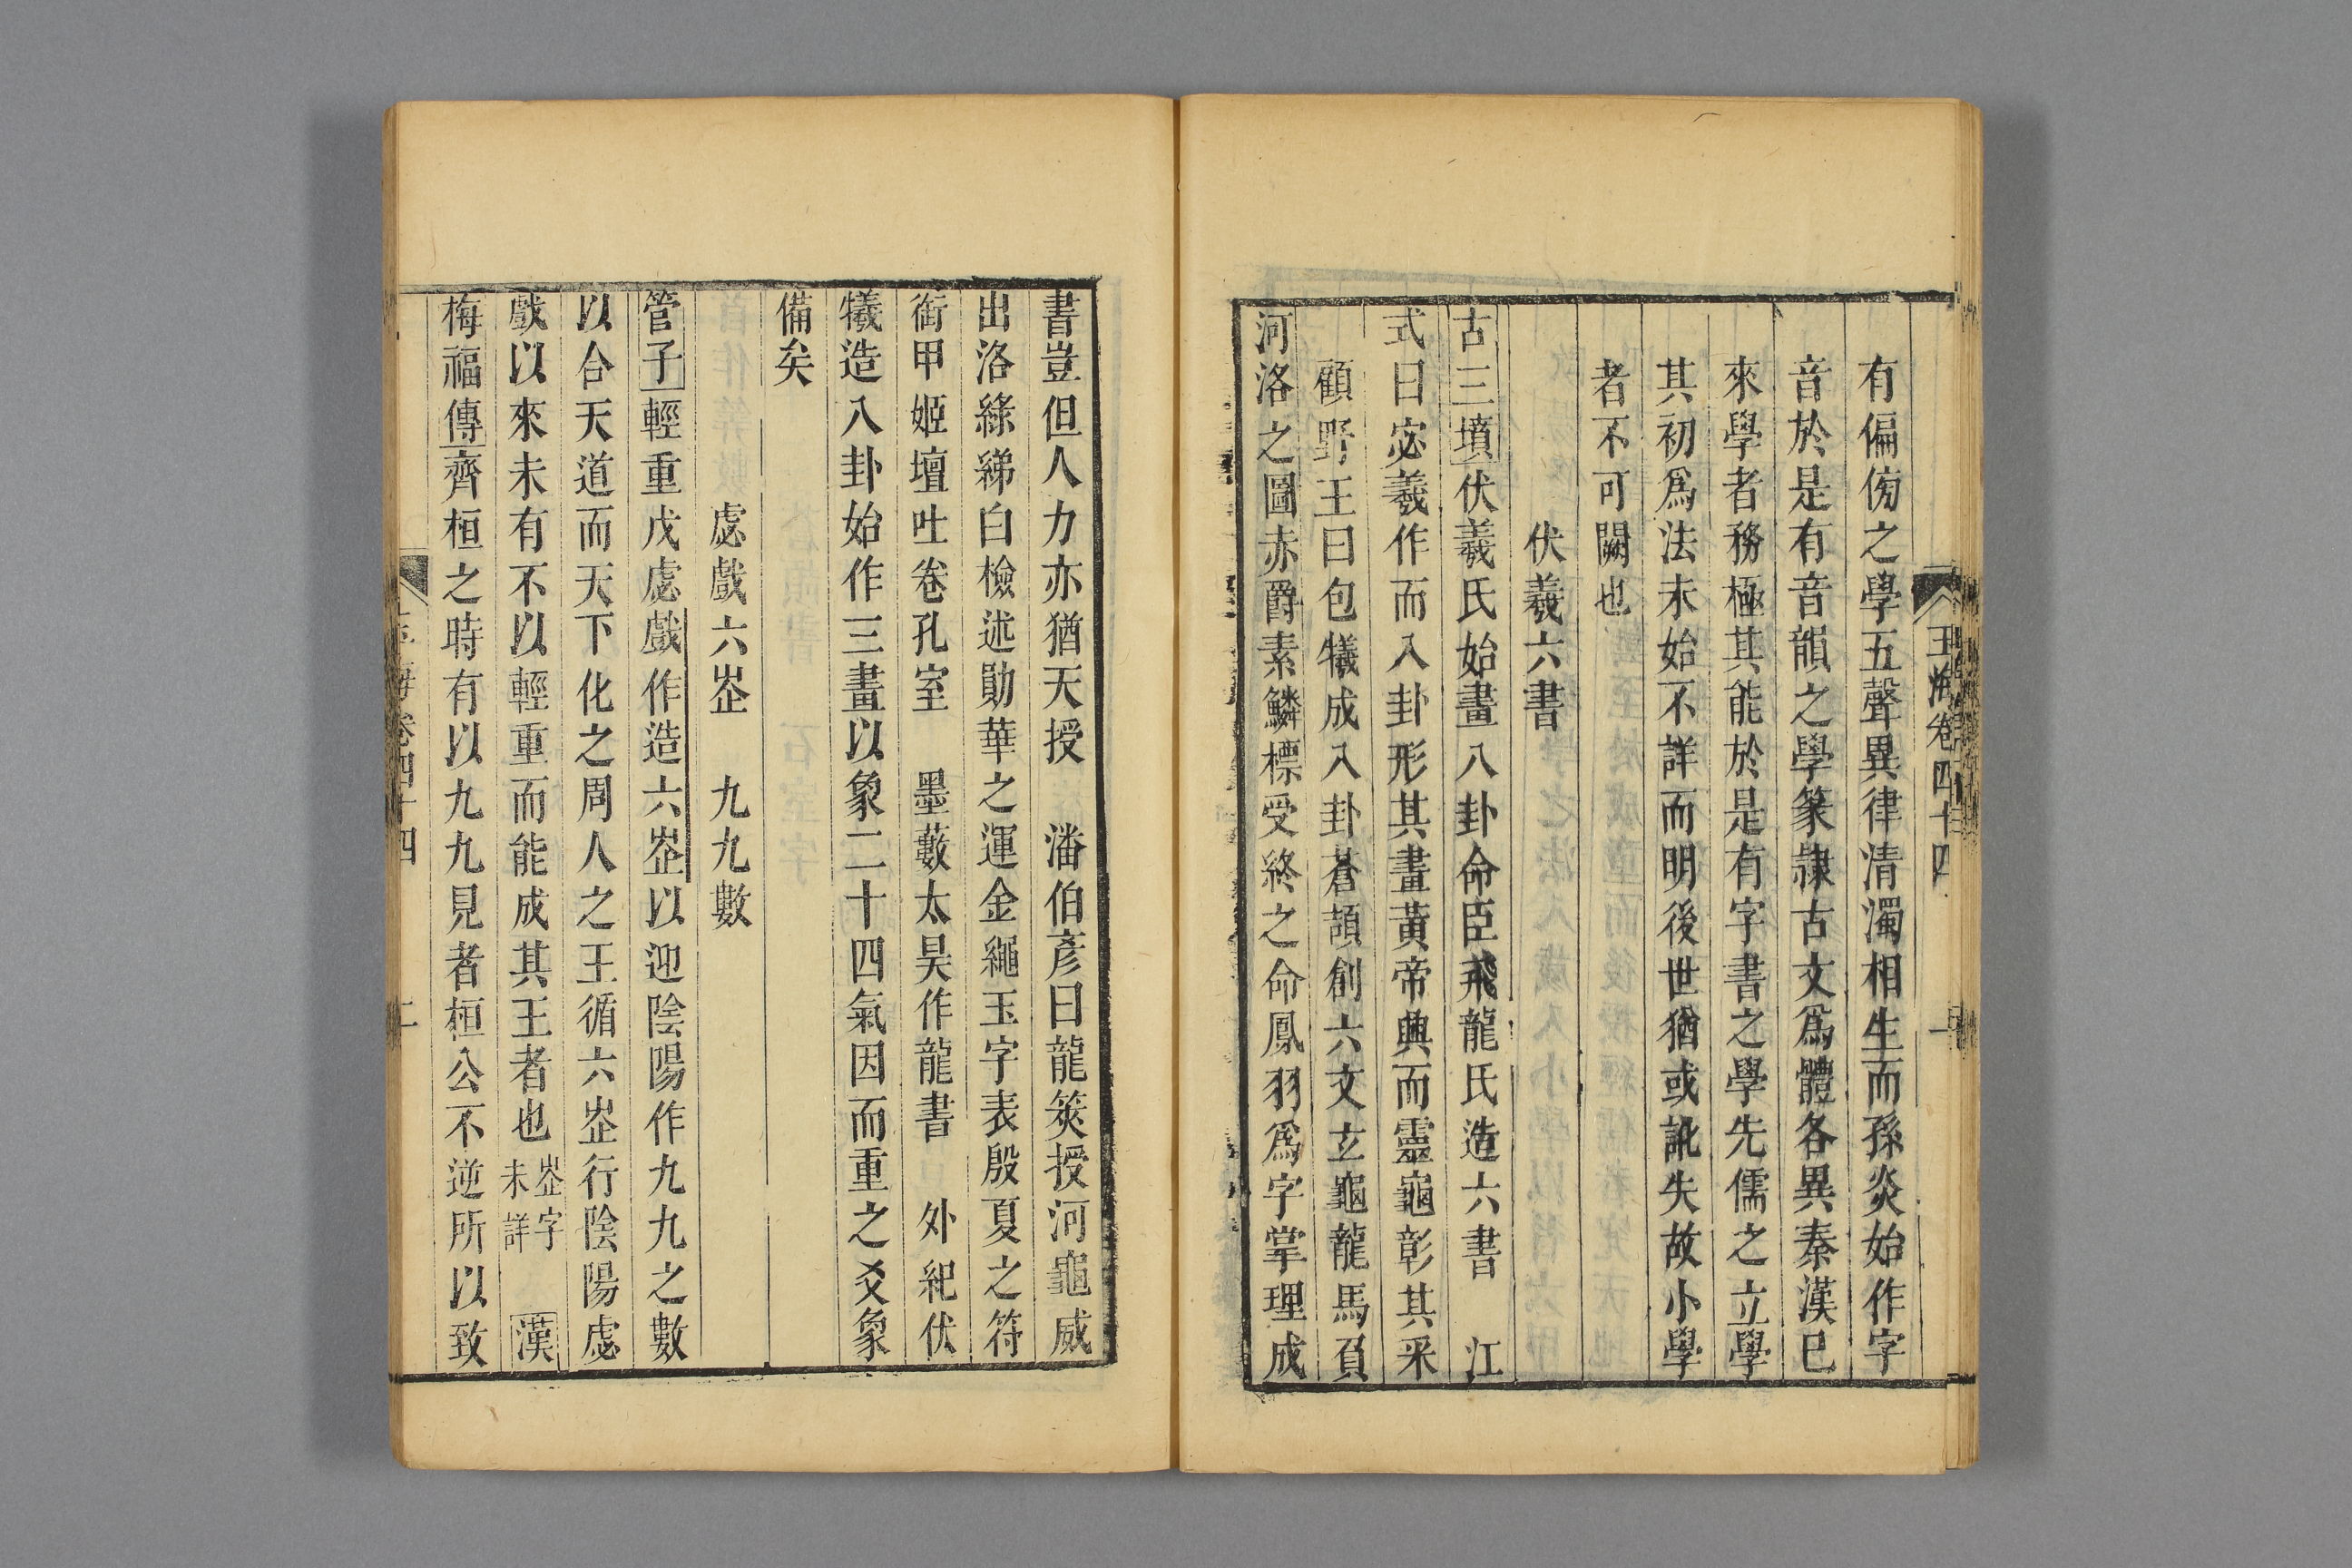 玉海卷四十四　一
有偏傍之學五聲異律清濁相生而孫炎始作字
音於是有音韻之學篆隸古文爲體各異秦漢已
來學者務極其能於是有字書之學先儒之立學
其初爲法未始不詳而明後世猶或訛失故小學
者不可闕也
伏羲六書
古三墳伏羲氏始畫八卦命臣飛龍氏造六書　江
式曰宓羲作而八卦形其畫黃帝興而靈龜彰其采
顧野王曰包犧成八卦蒼頡創六文玄龜龍馬負
河洛之圖赤爵素鱗標受終之命鳳羽爲字掌理成
書豈但人力亦猶天授　潘伯彥曰龍筴授河龜威
出洛綠綈白檢述勛華之運金繩玉字表殷夏之符
銜甲姬壇吐卷孔室　墨藪太昊作龍書　外紀伏
犧造八卦始作三畫以象二十四氣因而重之爻象
備矣
虙戲六峜　九九數
管子輕重戊虙戲作造六峜以迎陰陽作九九之數
以合天道而天下化之周人之王循六峜行陰陽虙
戲以來未有不以輕重而能成其王者也峜字未詳　漢
梅福傳齊桓之時有以九九見者桓公不逆所以致
玉海卷四十四　二